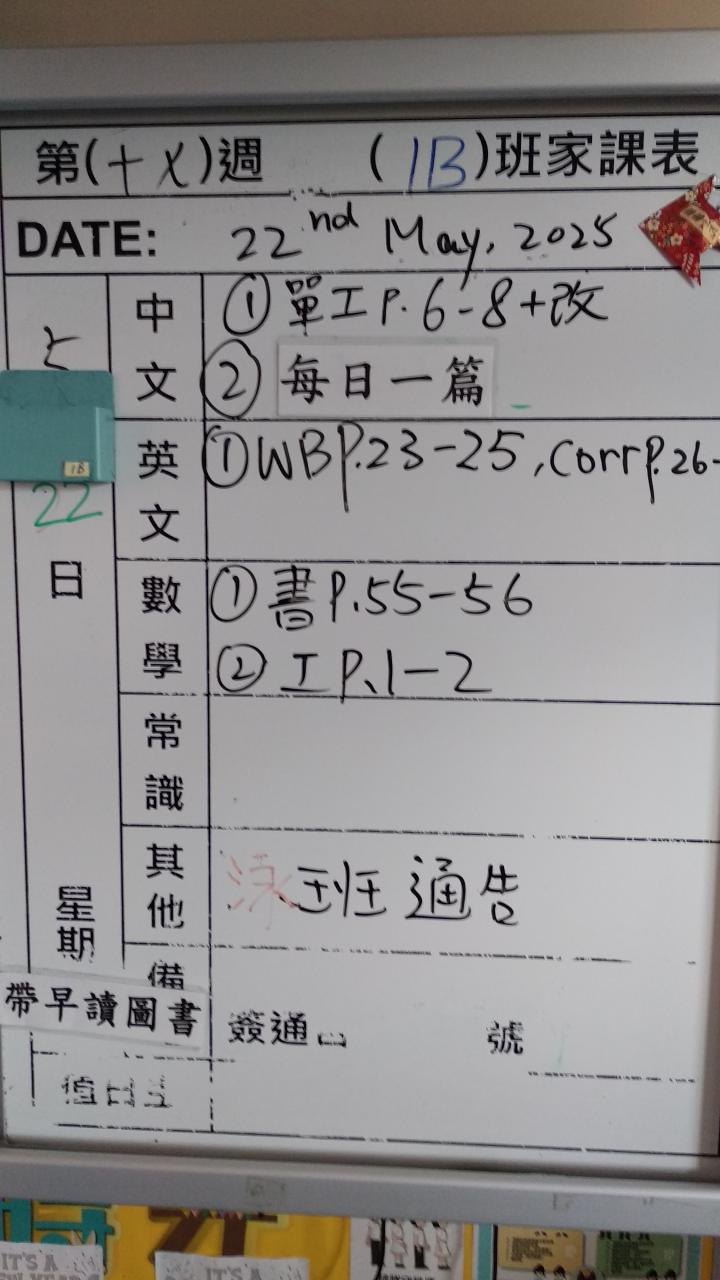 第(十乂)週 (1B)班家課表
DATE: 22nd May, 2025
22
日
星期
中文
① 單工P.6-8+改
② 每日一篇
英文
① WB P.23-25, Corr P.26-
數學
① 書P.55-56
② 工P.1-2
常識
其他
泳班通告
備
帶早讀圖書
簽通 號
值日生
1B
IT'S A
IT'S A